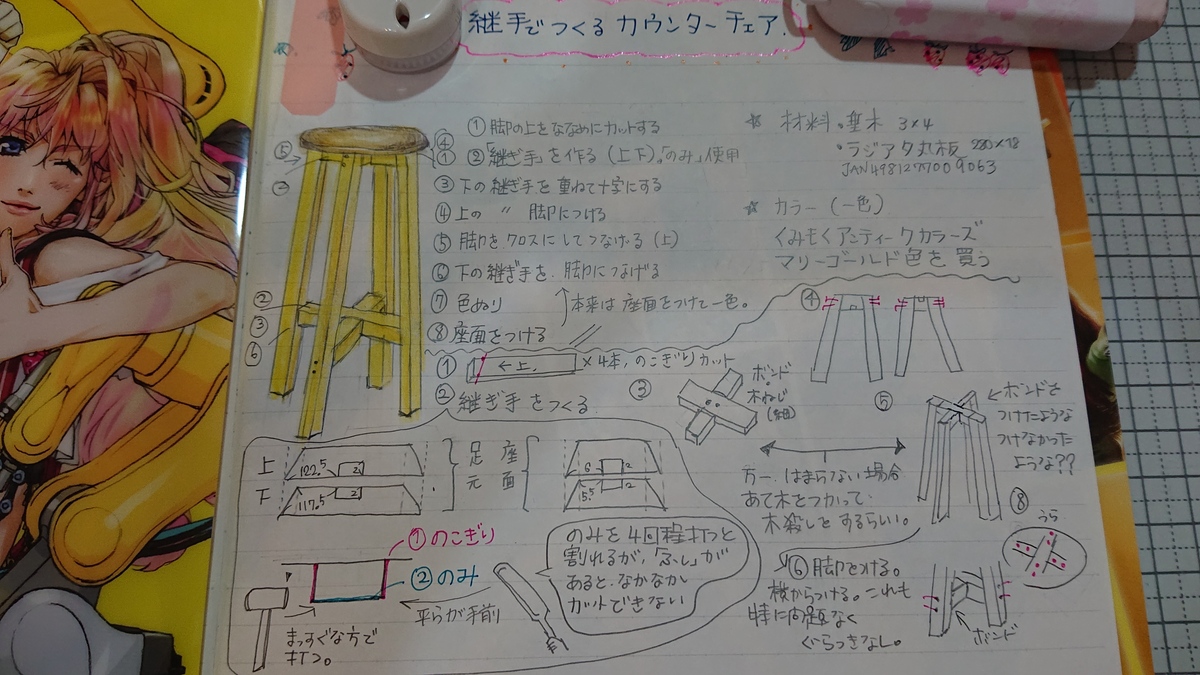 継手でつくるカウンターチェア.
①脚の上をななめにカットする
②「継ぎ手」を作る(上下)。「のみ」使用
③下の継ぎ手を重ねて十字にする
④上の 〃 脚につける
⑤脚をクロスにしてつなげる(上)
⑥下の継ぎ手を、脚につなげる
⑦色ぬり
↑本来は座面をつけて一色。
⑧座面をつける
☆ 材料。垂木 3×4
・ラジアタ丸板 280×18
JAN4981277009063
☆ カラー (一色)
くみもくアンティークカラーズ
マリーゴールド色を買う
⑤
④
①
②
③
⑥
① ←上. ×4本,のこぎりカット
②継ぎ手をつくる
上 122.5 2
下 117.5 2
足元
座面
6 2
5.5 2
①のこぎり
②のみ
平らが手前
まっすぐな方で
打つ。
のみを4回程打つと
割れるが、「ふし」が
あると、なかなか
カットできない
③
ボンド
+
木ねじ
(細)
④
⑤
←ボンドを
つけたような
つけなかった
ような??
万一、はまらない場合
あて木をつかって、
木殺しをするらしい。
⑥脚をつける。
横からつける。これも
特に問題なく
ぐらつきなし。
ボンド
⑧
うら